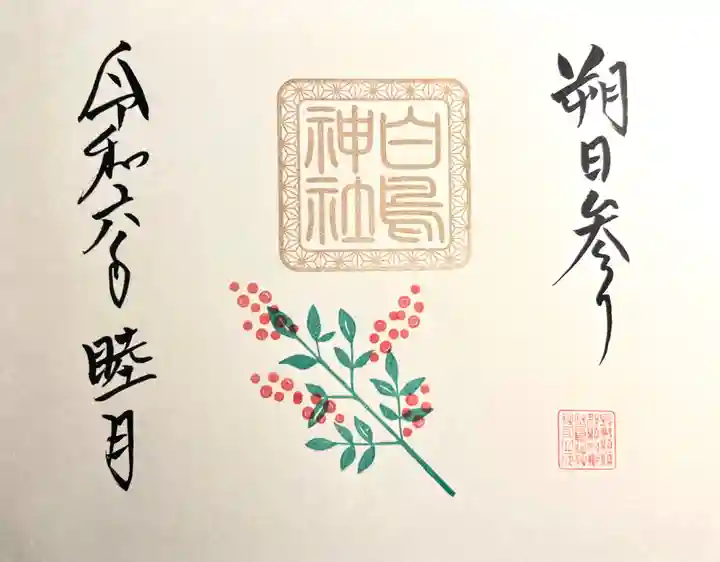 朔日参り
白鳥
神社
令和六年
睦月